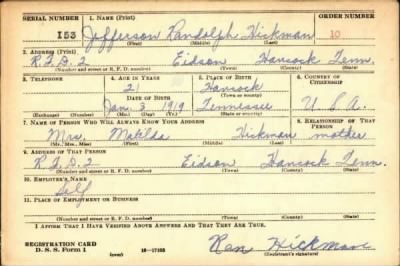 SERIAL NUMBER 1. NAME (Print) ORDER NUMBER
153 Jefferson Randolph Hickman 10
(First) (Middle) (Last)
2. ADDRESS (Print)
R.F.D. 2 Eidson Hancock Tenn.
(Number and street or R. F. D. number) (Town) (County) (State)
3. TELEPHONE 4. AGE IN YEARS 5. PLACE OF BIRTH 6. COUNTRY OF CITIZENSHIP
21 Hancock
DATE OF BIRTH (Town or county)
Jan. 3 1919 Tennessee U.S.A.
(Exchange) (Number) (Mo.) (Day) (Yr.) (State or country)
7. NAME OF PERSON WHO WILL ALWAYS KNOW YOUR ADDRESS 8. RELATIONSHIP OF THAT PERSON
Mrs. Matilda Hickman mother
(Mr., Mrs., Miss) (First) (Middle) (Last)
9. ADDRESS OF THAT PERSON
R.F.D. 2 Eidson Hancock Tenn.
(Number and street or R. F. D. number) (Town) (County) (State)
10. EMPLOYER'S NAME
Self
11. PLACE OF EMPLOYMENT OR BUSINESS
(Number and street or R. F. D. number) (Town) (County) (State)
I AFFIRM THAT I HAVE VERIFIED ABOVE ANSWERS AND THAT THEY ARE TRUE.
REGISTRATION CARD
D. S. S. Form 1 (over) Hickman
(Registrant's signature)